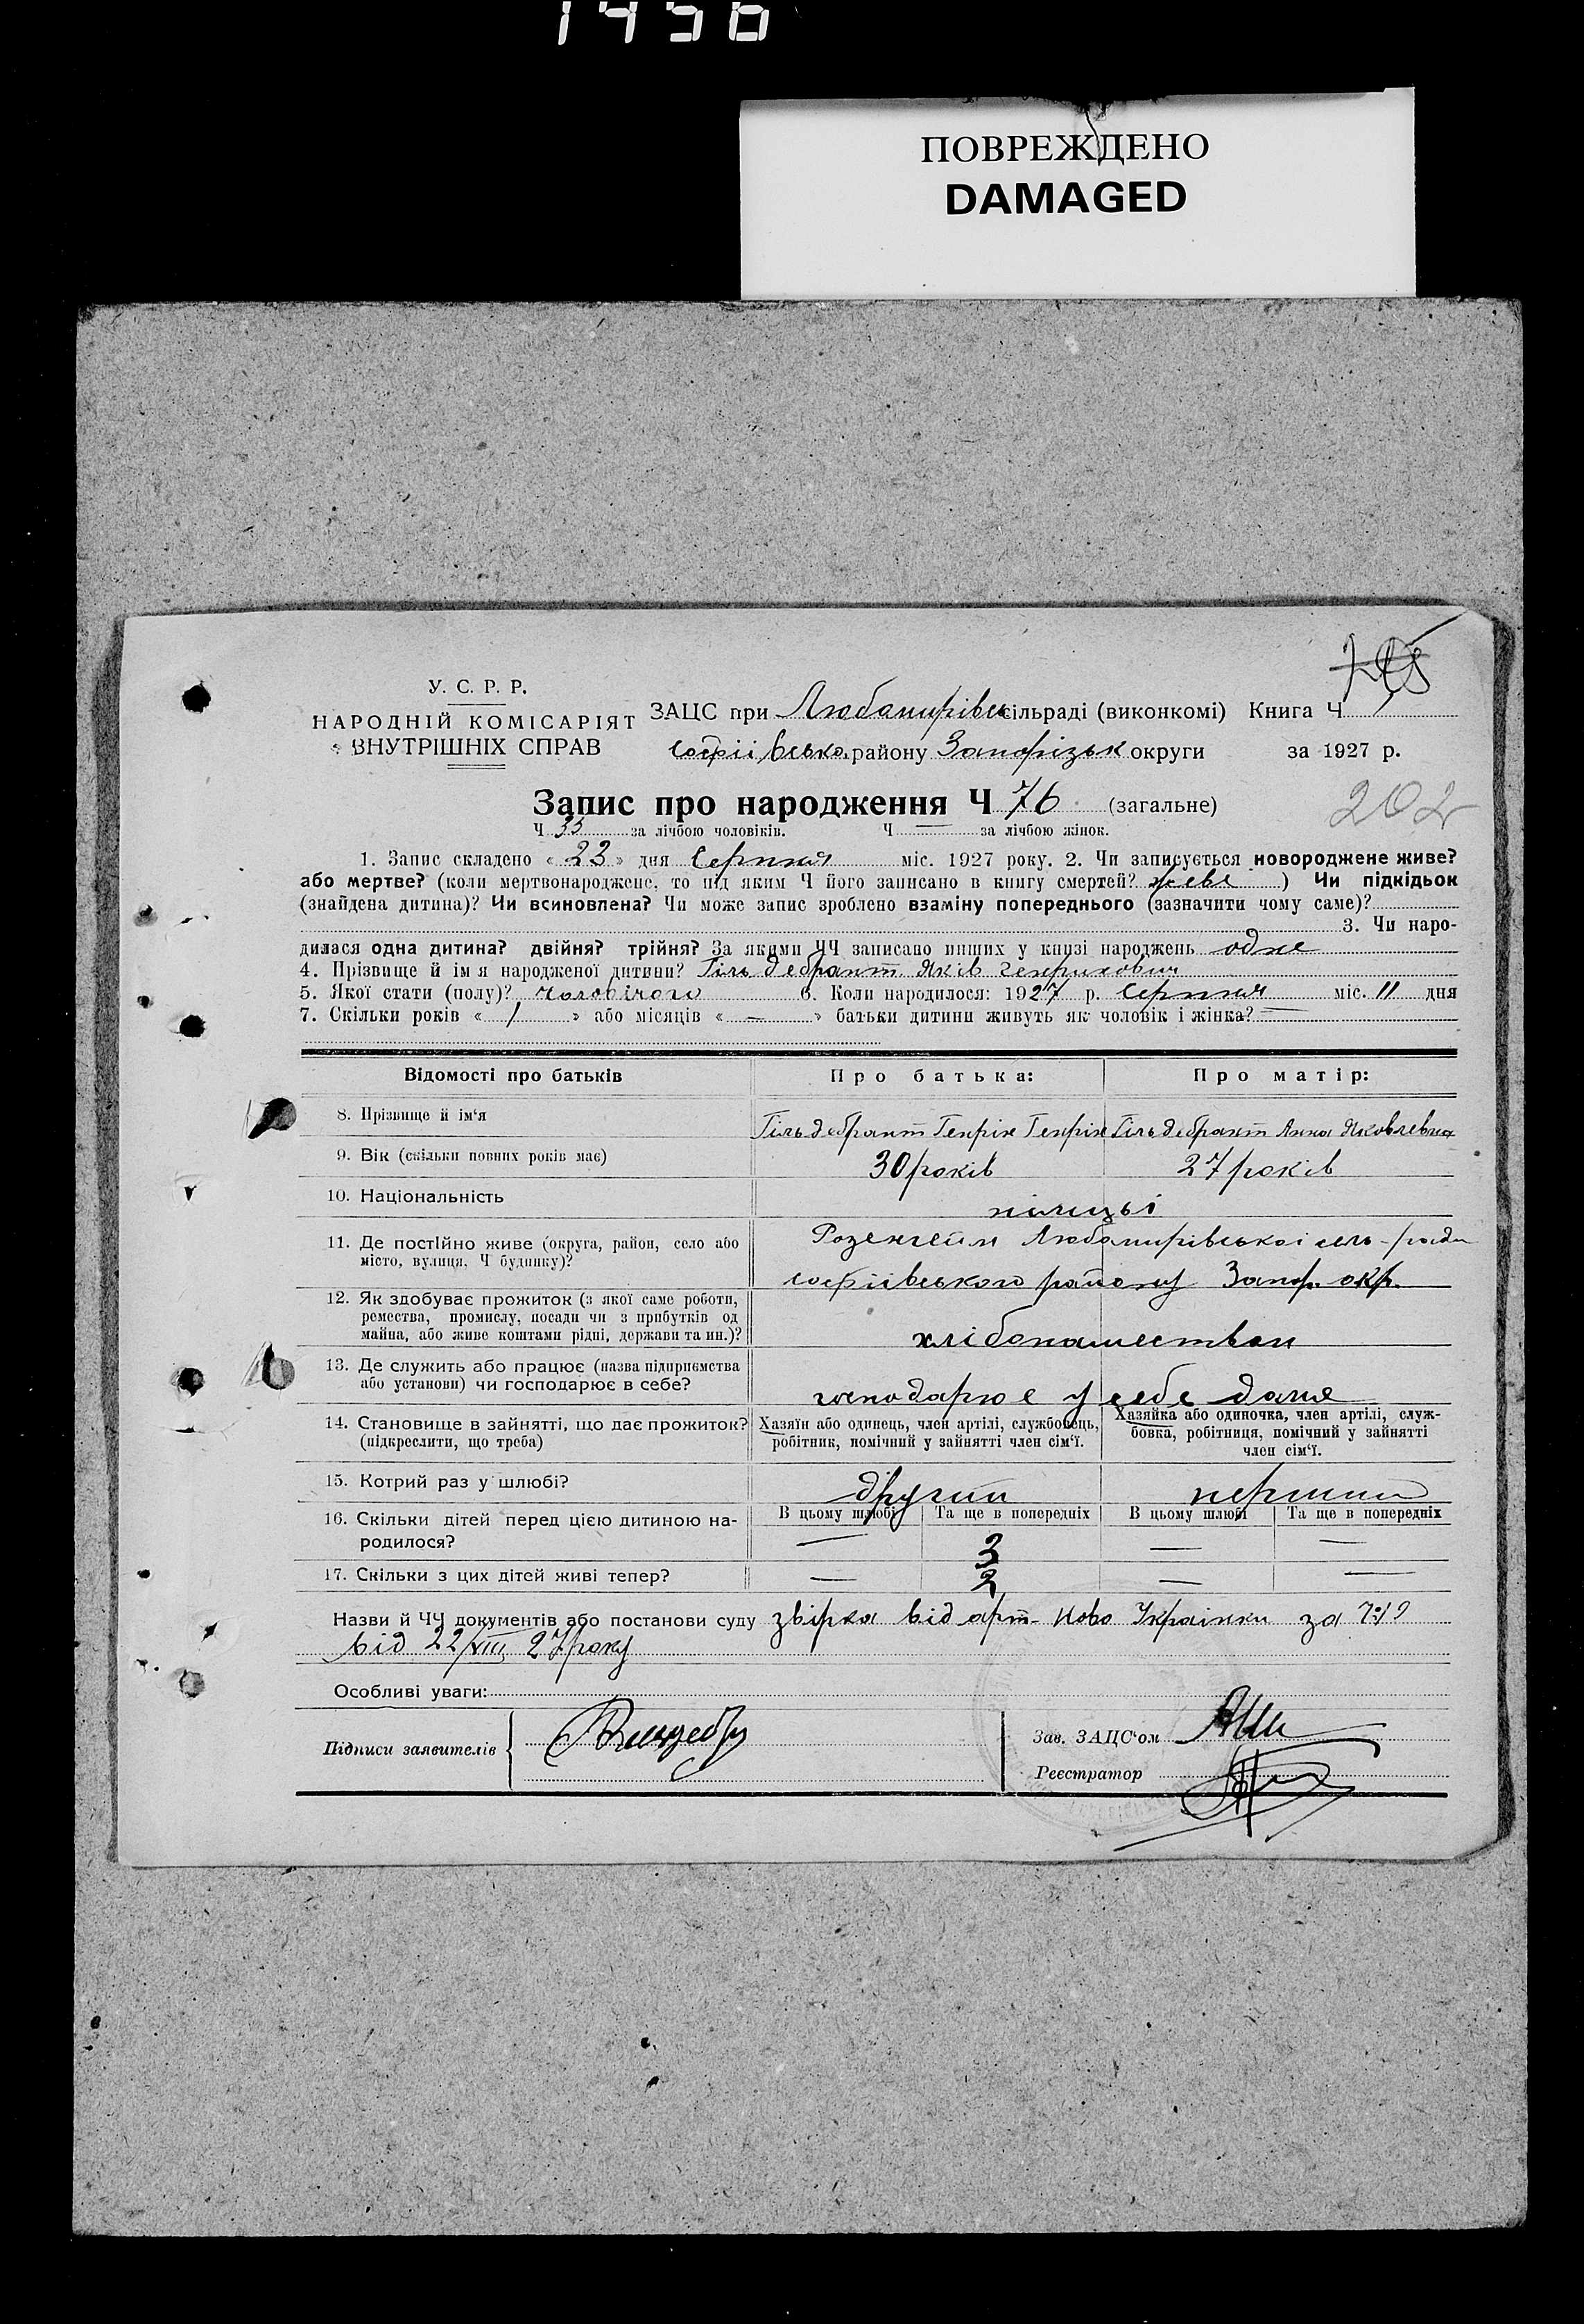 1456
ПОВРЕЖДЕНО
DAMAGED
У. С. Р. Р.
НАРОДНІЙ КОМІСАРІЯТ
ВНУТРІШНІХ СПРАВ
ЗАЦС при Любамирівсь сільраді (виконкомі) Книга Ч
софіївська району Запорізьк округи за 1927 р.
Запис про народження Ч 76 (загальне)
202
Ч 33 за лічбою чоловіків. Ч — за лічбою жінок.
1. Запис складено « 23 » дня Серпня міс. 1927 року. 2. Чи записується новороджене живе?
або мертве? (коли мертвонароджене, то під яким Ч його записано в книгу смертей? живе ) Чи підкідьок
(знайдена дитина)? Чи всиновлена? Чи може запис зроблено взаміну попереднього (зазначити чому саме)?
3. Чи наро-
дилася одна дитина? двійня? трійня? За якими ЧЧ записано инших у книзі народжень одне
4. Прізвище й ім я народженої дитини? Гільдебрант Яків Генрихович
5. Якої стати (полу)? чоловічого 6. Коли народилося: 1927 р. Серпня міс. 11 дня
7. Скільки років « 1 » або місяців « — » батьки дитини живуть як чоловік і жінка? —
Відомості про батьків Про батька: Про матір:
8. Прізвище й ім'я Гільдебрант Генріх Генріх Гільдебрант Анна Яковлевна
9. Вік (скільки повних років має) 30 років 27 років
10. Національність німецьі
11. Де постійно живе (округа, район, село або
місто, вулиця, Ч будинку)?
Розенгейм Любамирівської сель-ради
софіївського району Запор. окр.
12. Як здобуває прожиток (з якої саме роботи,
ремества, промислу, посади чи з прибутків од
майна, або живе коштами рідні, держави та ин.)?
хлібопашеством
13. Де служить або працює (назва підприємства
або установи) чи господарює в себе?
господарює у себе дома
14. Становище в зайнятті, що дає прожиток?
(підкреслити, що треба)
Хазяїн або одинець, член артілі, службовець,
робітник, помічний у зайнятті член сім'ї.
Хазяйка або одиночка, член артілі, служ-
бовка, робітниця, помічний у зайнятті
член сім'ї.
15. Котрий раз у шлюбі? другий перший
16. Скільки дітей перед цією дитиною на-
родилося?
В цьому шлюбі Та ще в попередніх В цьому шлюбі Та ще в попередніх
— 3 — —
17. Скільки з цих дітей живі тепер? — 2 — —
Назви й ЧЧ документів або постанови суду звірка від арт- Ново Українки за
від 22/VIII 27 року
Особливі уваги:
Підписи заявителів
Зав. ЗАЦС'ом
Реєстратор